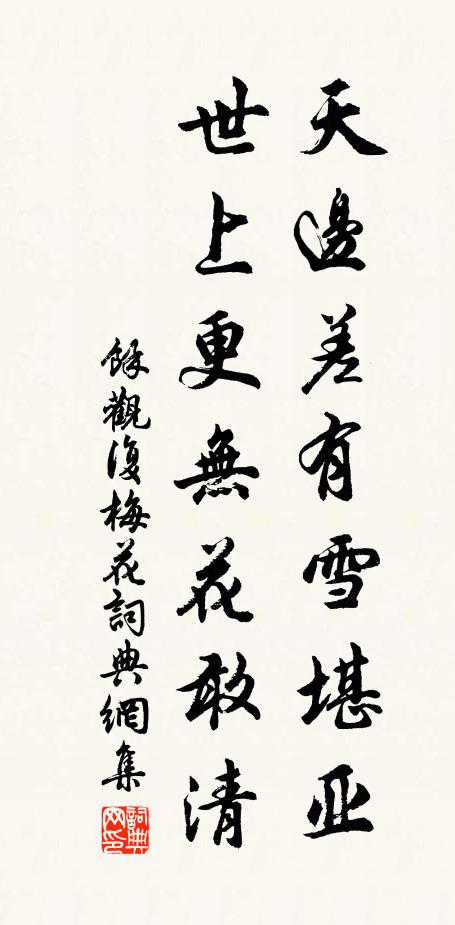 天邊差有雪堪亚
世上更無花敢清
餘觀復梅花詞典網集
詞典网印